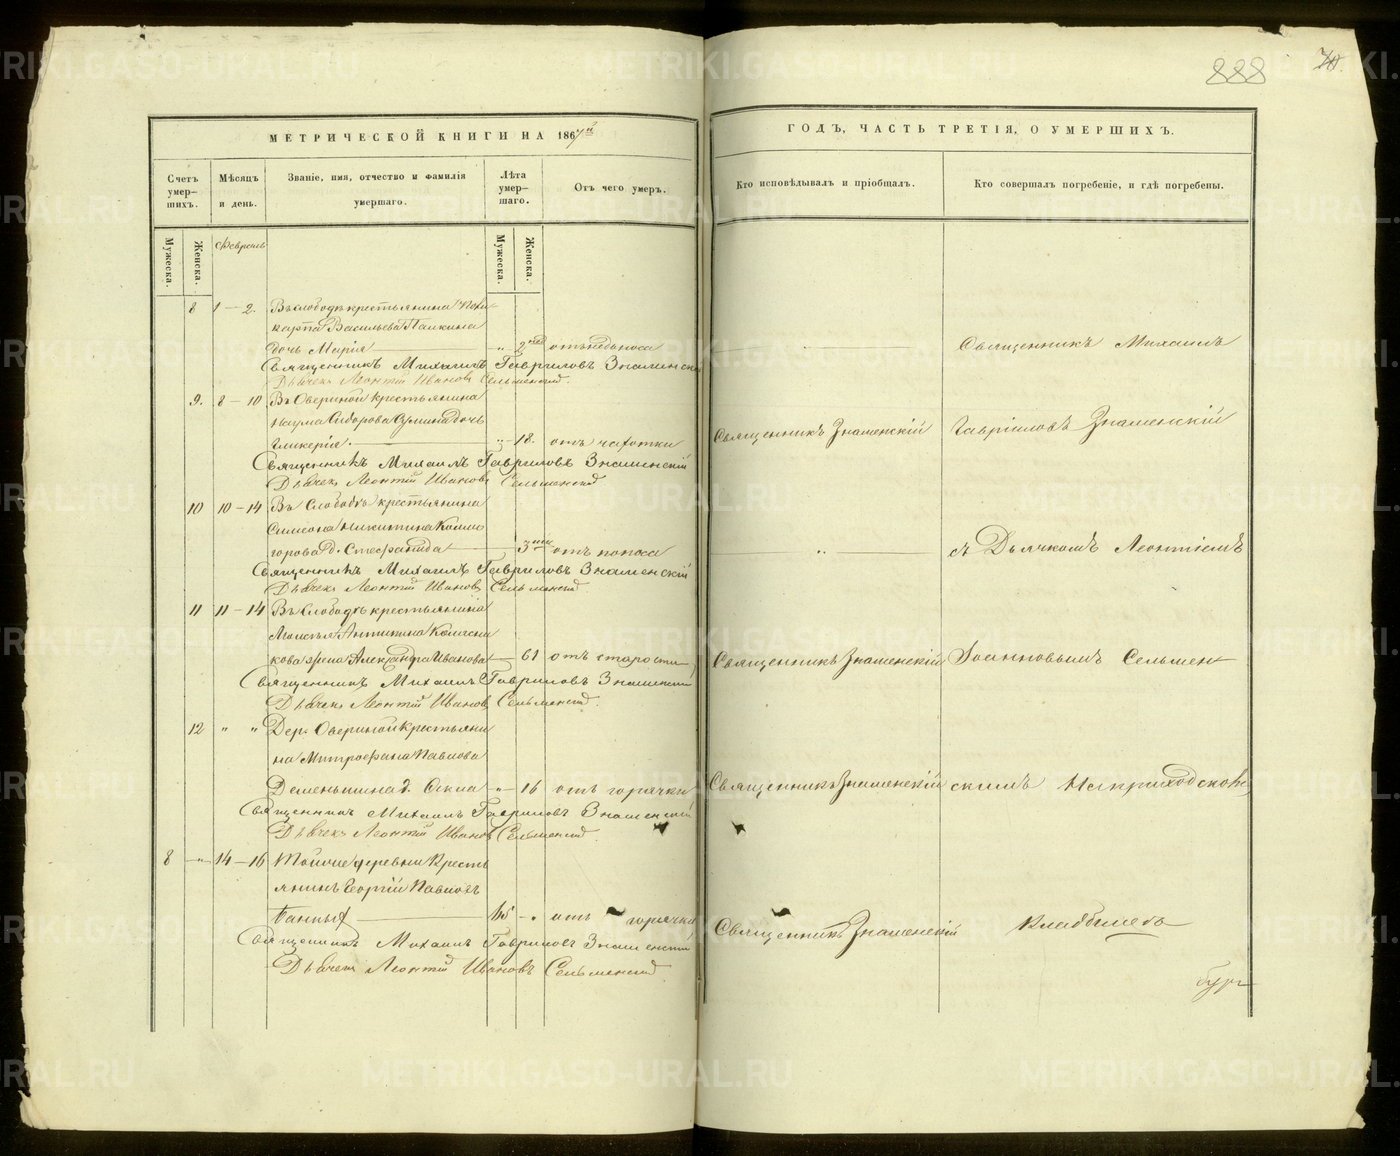 888
70.
МЕТРИЧЕСКОЙ КНИГИ НА 1867й
ГОДЪ, ЧАСТЬ ТРЕТІЯ, О УМЕРШИХЪ.
Счетъ умер-шихъ.
Мѣсяцъ и день.
Званіе, имя, отчество и фамилія умершаго.
Лѣта умер-шаго.
Отъ чего умеръ.
Кто исповѣдывалъ и пріобщалъ.
Кто совершалъ погребеніе, и гдѣ погребены.
Мужеска.
Женска.
Мужеска.
Женска.
Февраль
8 1-2. Въ слободѣ крестьянина
карпа Васильева Палкина
дочь Марія " 2 отъ поноса
Священникъ Михаилъ
Священникъ Михаилъ Гавриловъ Знаменскій
Дьячекъ Леонтій Ивановъ Сельменскій.
9. 8-10 Въ Овериной крестьянина
Наума Сидорова дочь
Гликерія. " 18. отъ чахотки
Священникъ Знаменскій
Гавріиловъ Знаменскій
Священникъ Михаилъ Гавриловъ Знаменскій
Дьячекъ Леонтій Ивановъ Сельменскій
10 10-14 Въ Слободѣ крестьянина
Симеона Никитина Колмо
горова д. Стефанида 3 отъ поноса
"
съ Дьячкомъ Леонтіемъ
Священникъ Михаилъ Гавриловъ Знаменскій
Дьячекъ Леонтій Ивановъ Сельменскій.
11 11-14 Въ Слободѣ крестьянина
Антипина
кова жена Александра Иванова 61 отъ старости
Священникъ Знаменскій
Іоанновымъ Сельмен
Священникъ Михаилъ Гавриловъ Знаменскій
Дьячекъ Леонтій Ивановъ Сельменскій.
12 " " Дер. Овериной крестьяни
на Митрофана Павлова
Деменьшина д. " 16 отъ горячки
Священникъ Знаменскій
скимъ На приходскомъ
Священникъ Михаилъ Гавриловъ Знаменскій
Дьячекъ Леонтій Ивановъ Сельменскій.
8 " 14-16 Той же деревни Кресть
янинъ Георгій Павловъ
45 " отъ горячки
Священникъ Знаменскій
Кладбищѣ
Священникъ Михаилъ Гавриловъ Знаменскій
Дьячекъ Леонтій Ивановъ Сельменскій
METRIKI.GASO-URAL.RU